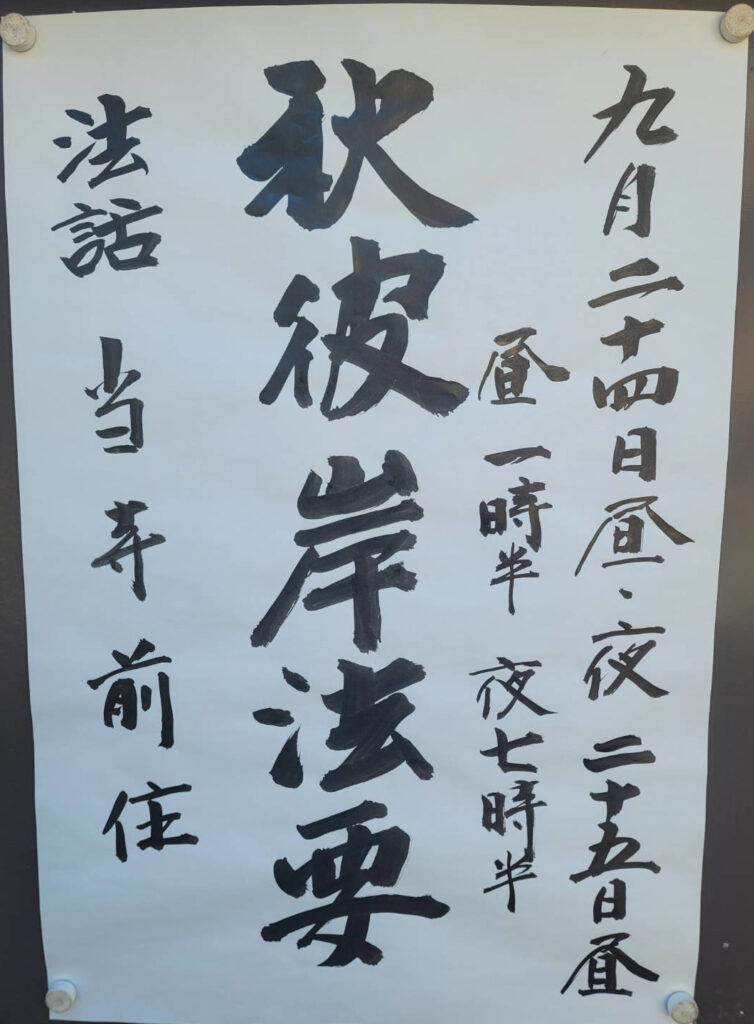 九月二十四日昼・夜 二十五日昼
昼 一時半 夜七時半
秋彼岸法要
法話 当寺前住